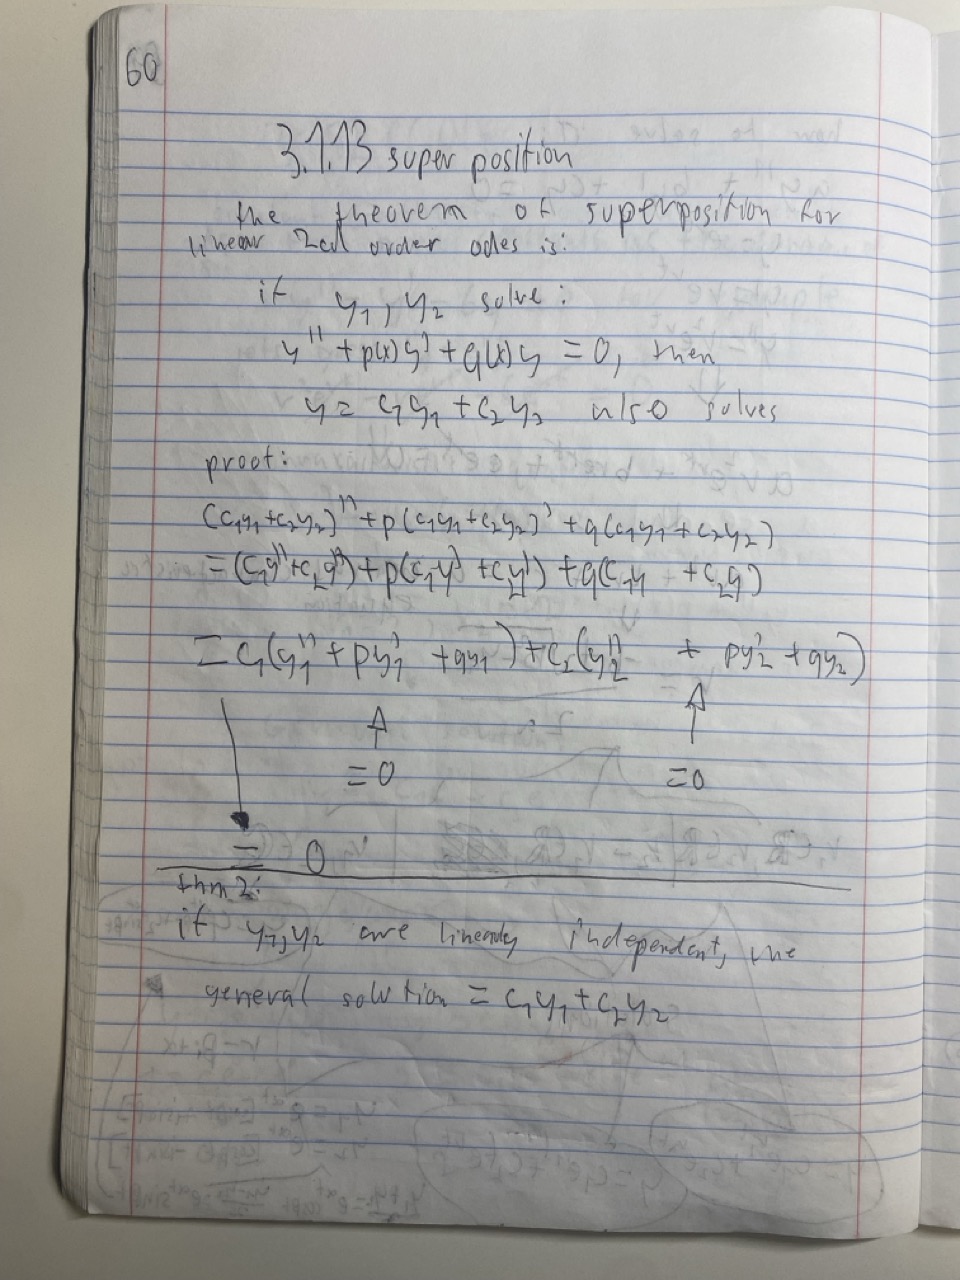 60
3.1.13 super position
the theorem of superposition for
linear 2cd order odes is:
if y₁, y₂ solve:
y'' + p(x)y' + q(x)y = 0, then
y = c₁y₁ + c₂y₂ also solves
proof:
(c₁y₁+c₂y₂)'' + p(c₁y₁+c₂y₂)' + q(c₁y₁+c₂y₂)
= (c₁y''+c₂y'') + p(c₁y' + cy') + q(c₁y + c₂y)
= c₁(y₁'' + py₁' + qy₁) + c₂(y₂'' + py₂' + qy₂)
= 0 = 0
= 0
thm 2:
if y₁, y₂ are linearly independent, the
general solution = c₁y₁ + c₂y₂